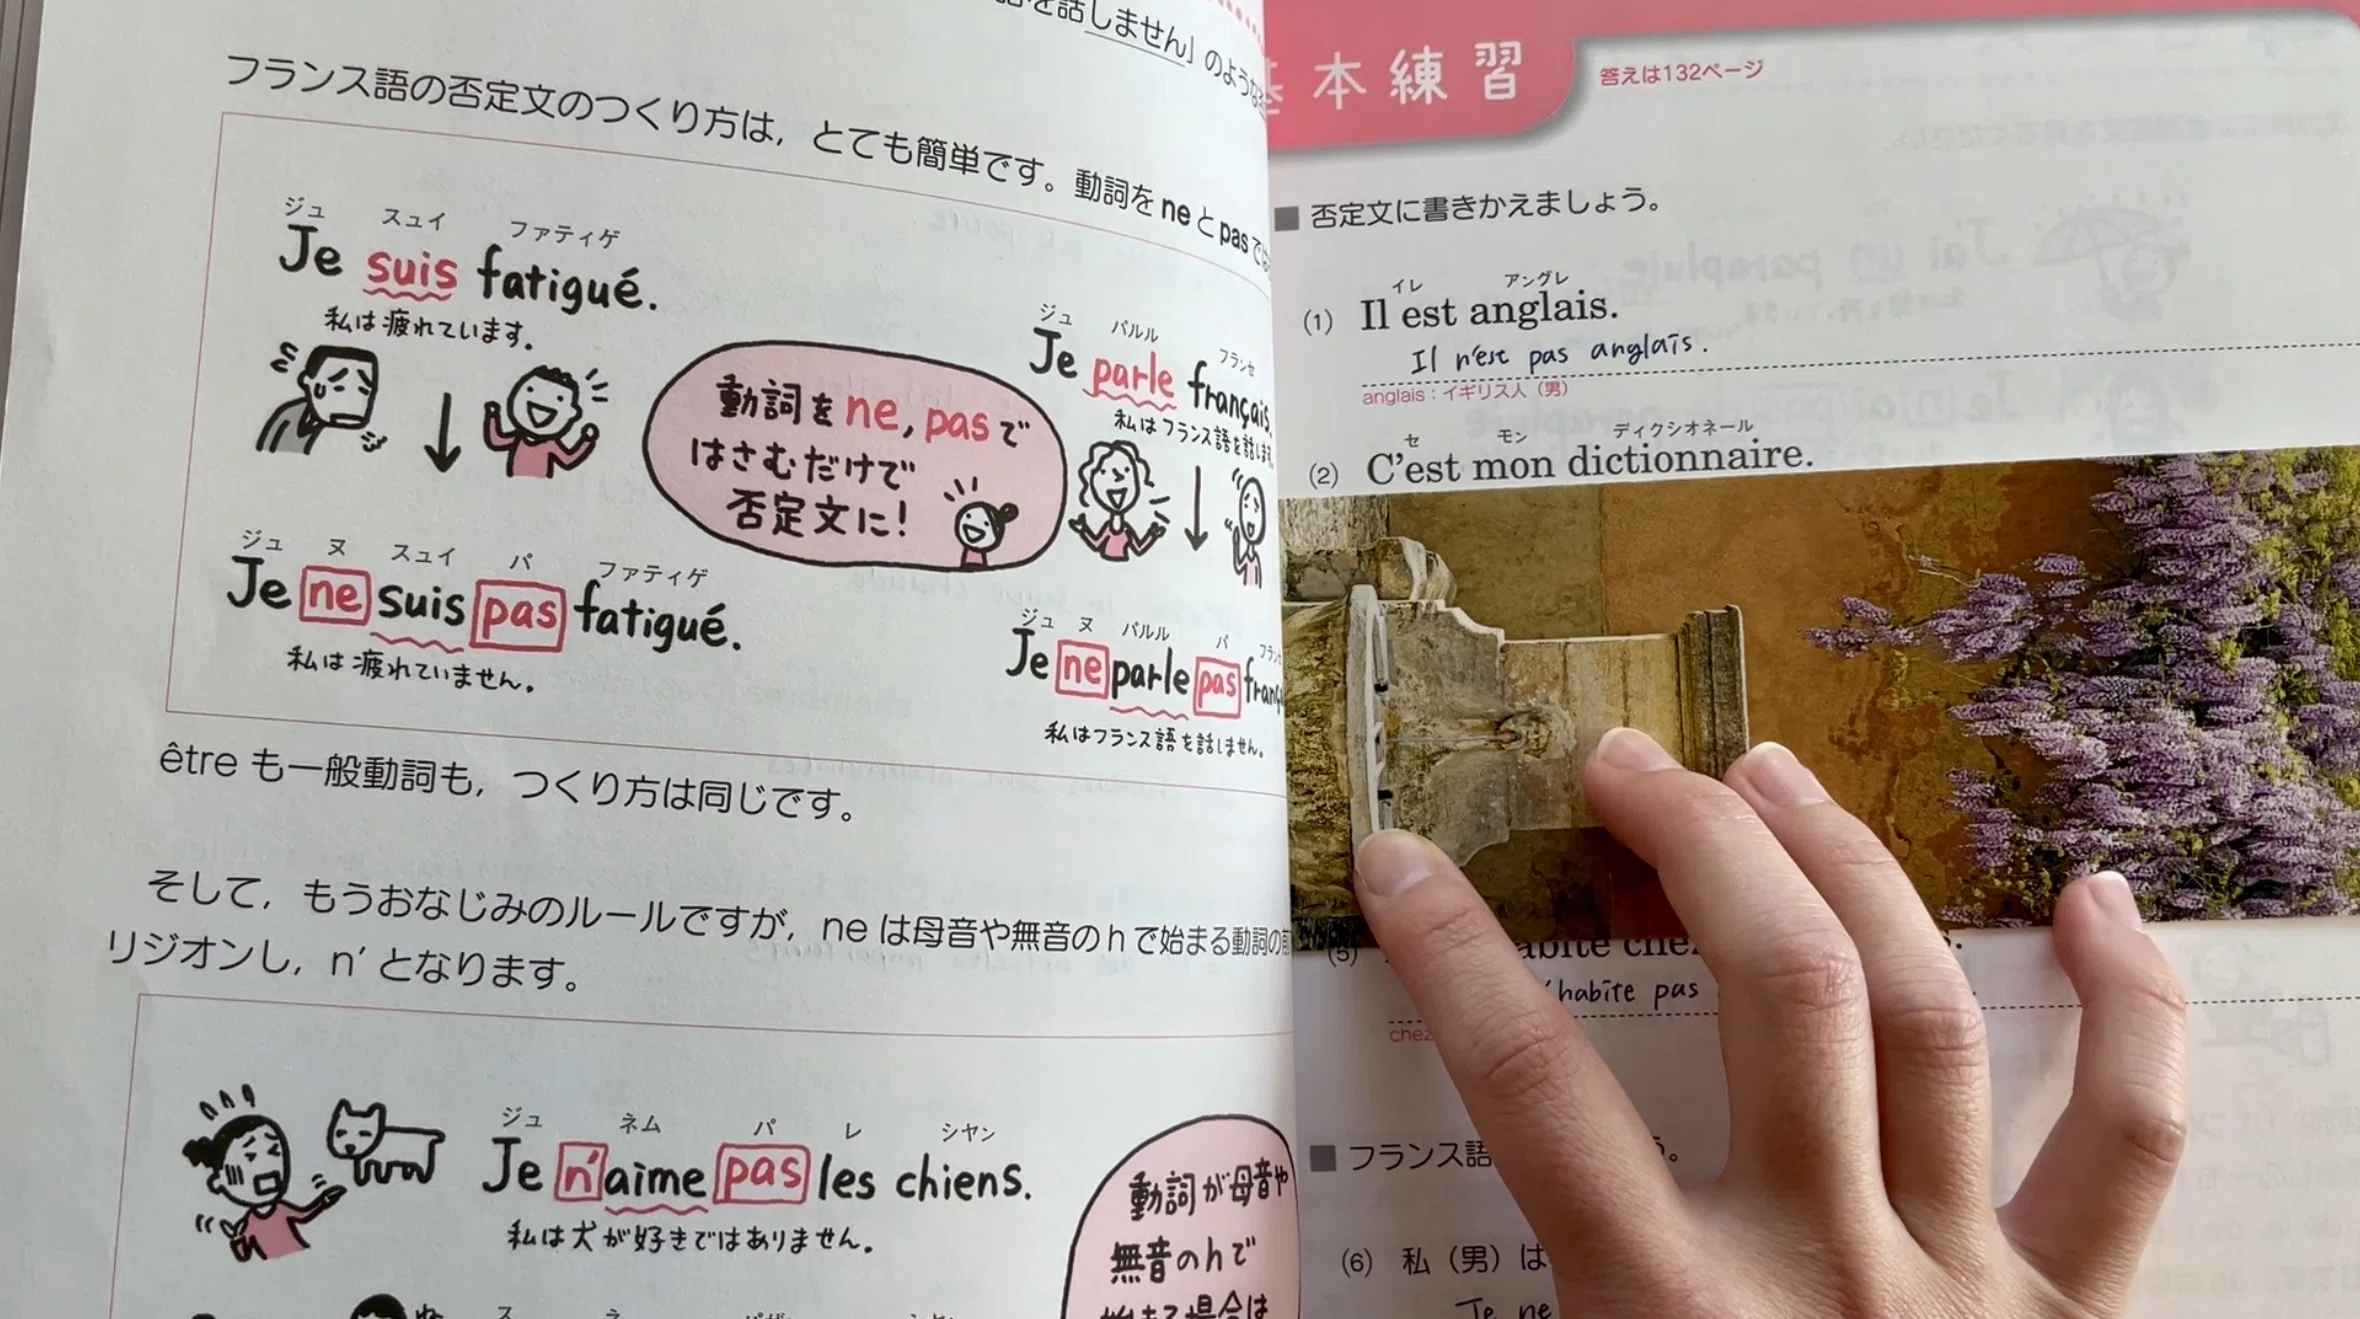 を話しません」のような
フランス語の否定文のつくり方は，とても簡単です。動詞をneとpasでは
ジュ スュイ ファティゲ
Je suis fatigué.
私は疲れています。
動詞をne, pasで
はさむだけで
否定文に！
ジュ パルル フランセ
Je parle français.
私はフランス語を話します
ジュ ヌ スュイ パ ファティゲ
Je ne suis pas fatigué.
私は疲れていません。
ジュ ヌ パルル パ フランセ
Je ne parle pas frança
私はフランス語を話しません。
êtreも一般動詞も，つくり方は同じです。
そして，もうおなじみのルールですが，neは母音や無音のhで始まる動詞の前
リジオンし，n’となります。
ジュ ネム パ レ シヤン
Je n’aime pas les chiens.
私は犬が好きではありません。
動詞が母音や
無音のhで
始まる場合は
本練習
答えは132ページ
■ 否定文に書きかえましょう。
イレ アングレ
(1) Il est anglais.
Il n'est pas anglais.
anglais：イギリス人（男）
セ モン ディクシオネール
(2) C’est mon dictionnaire.
(5) abite che
'habite pas
chez
■ フランス語 う。
(6) 私（男）は
Je ne